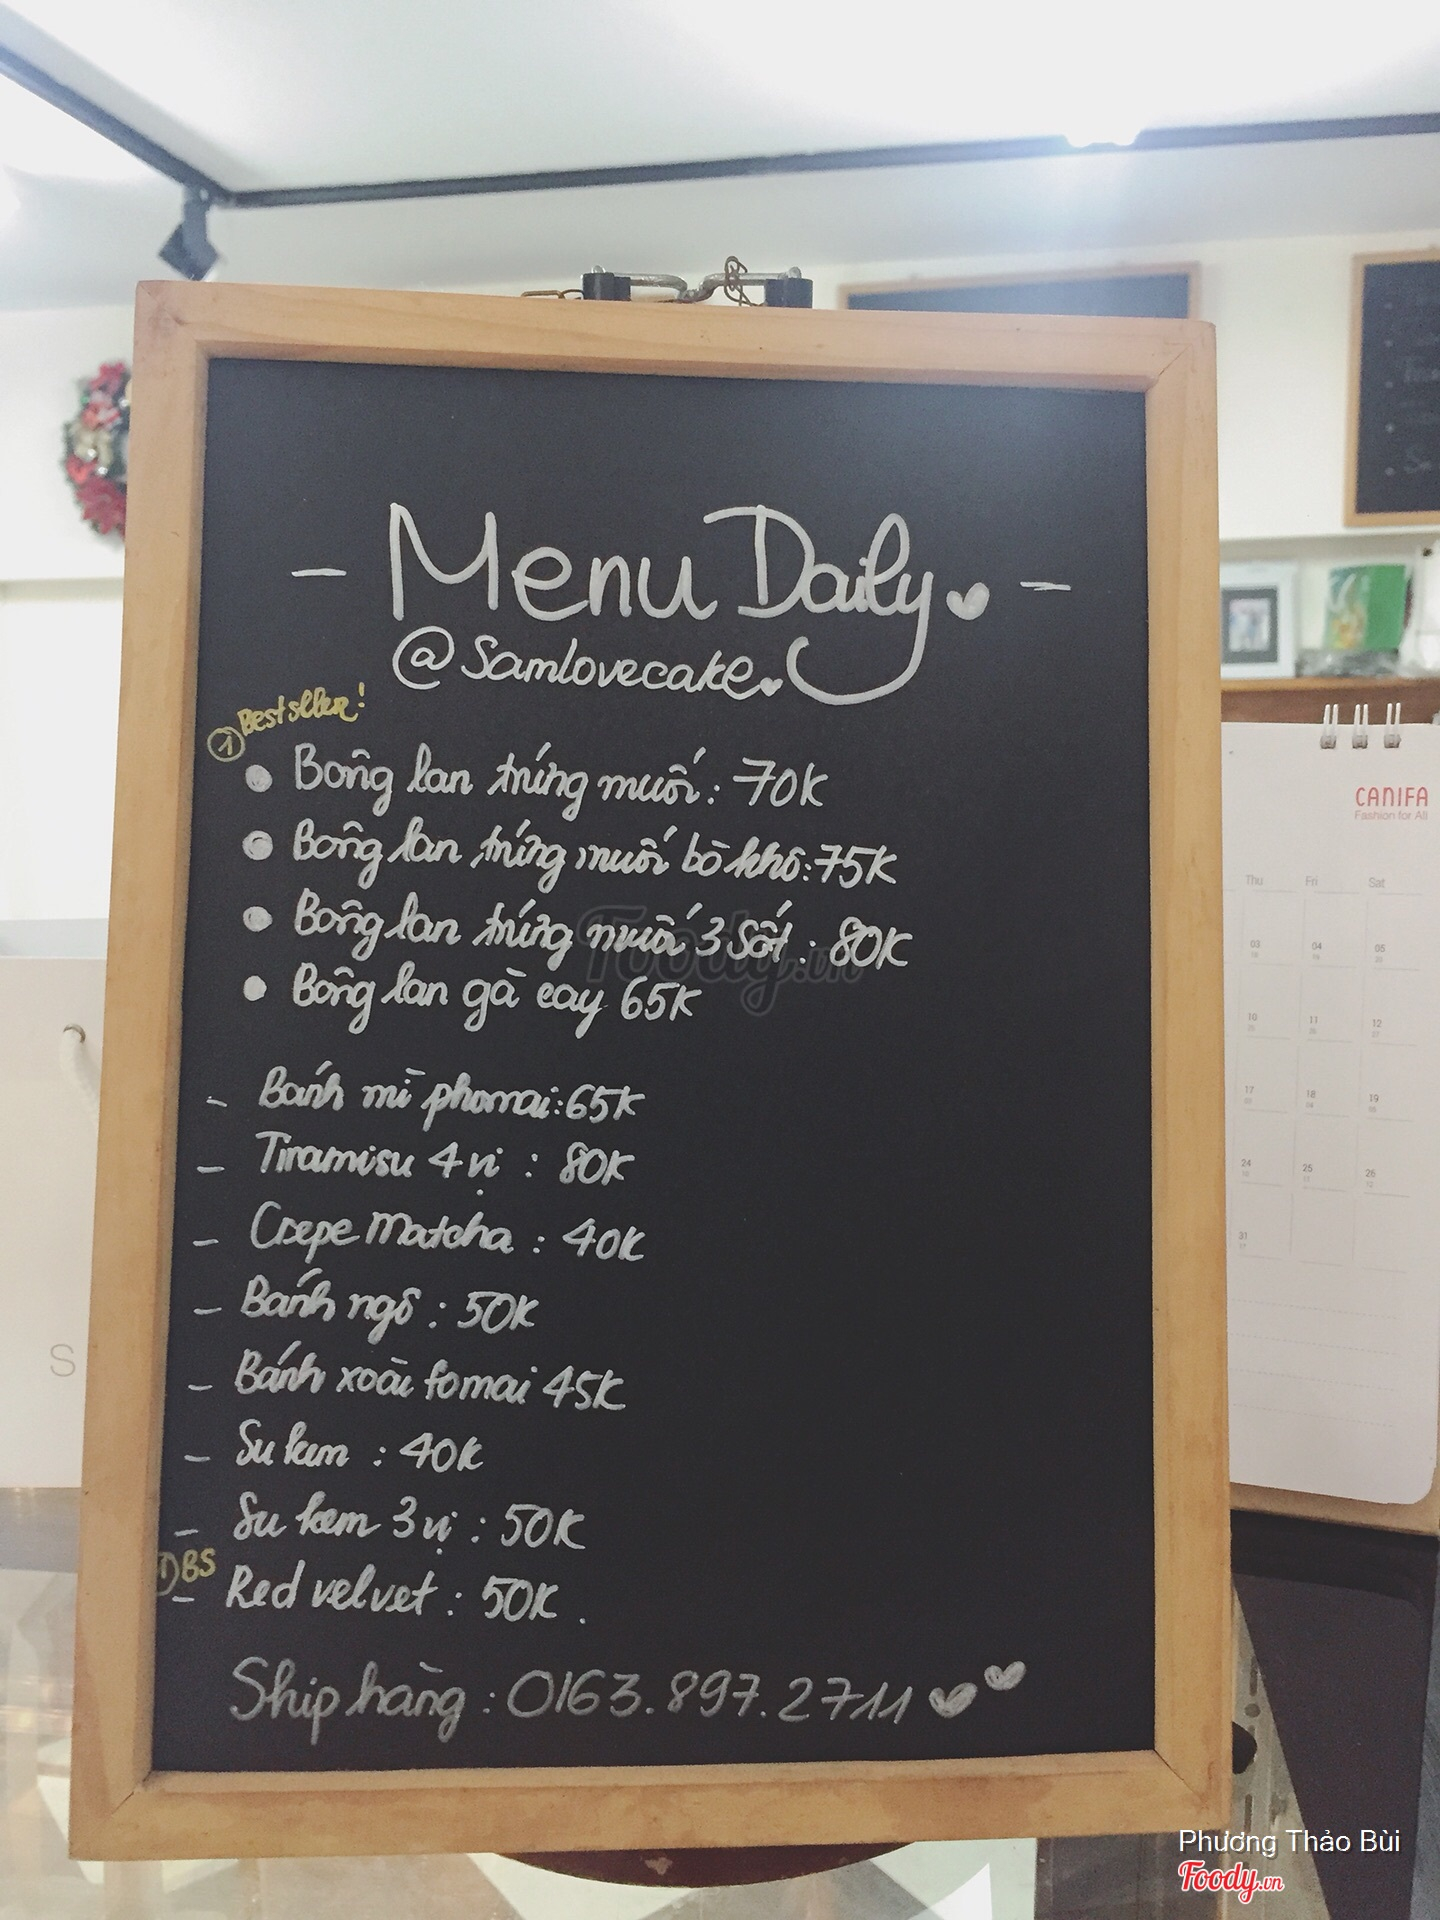 - Menu Daily -
@Samlovecake
① Bestseller!
• Bông lan trứng muối: 70K
• Bông lan trứng muối bò khô: 75K
• Bông lan trứng muối 3 sốt: 80K
• Bông lan gà cay 65K
- Bánh mì phomai: 65K
- Tiramisu 4 vị: 80K
- Crepe Matcha: 40K
- Bánh ngô: 50K
- Bánh xoài fomai 45K
- Su kem: 40K
- Su kem 3 vị: 50K
① BS
- Red velvet: 50K.
Ship hàng: 0163.897.2711
Foody.vn
CANIFA
Fashion for All
Thu Fri Sat
03 04 05
10 11 12
17 18 19
24 25 26
31
S
Phương Thảo Bùi
Foody.vn